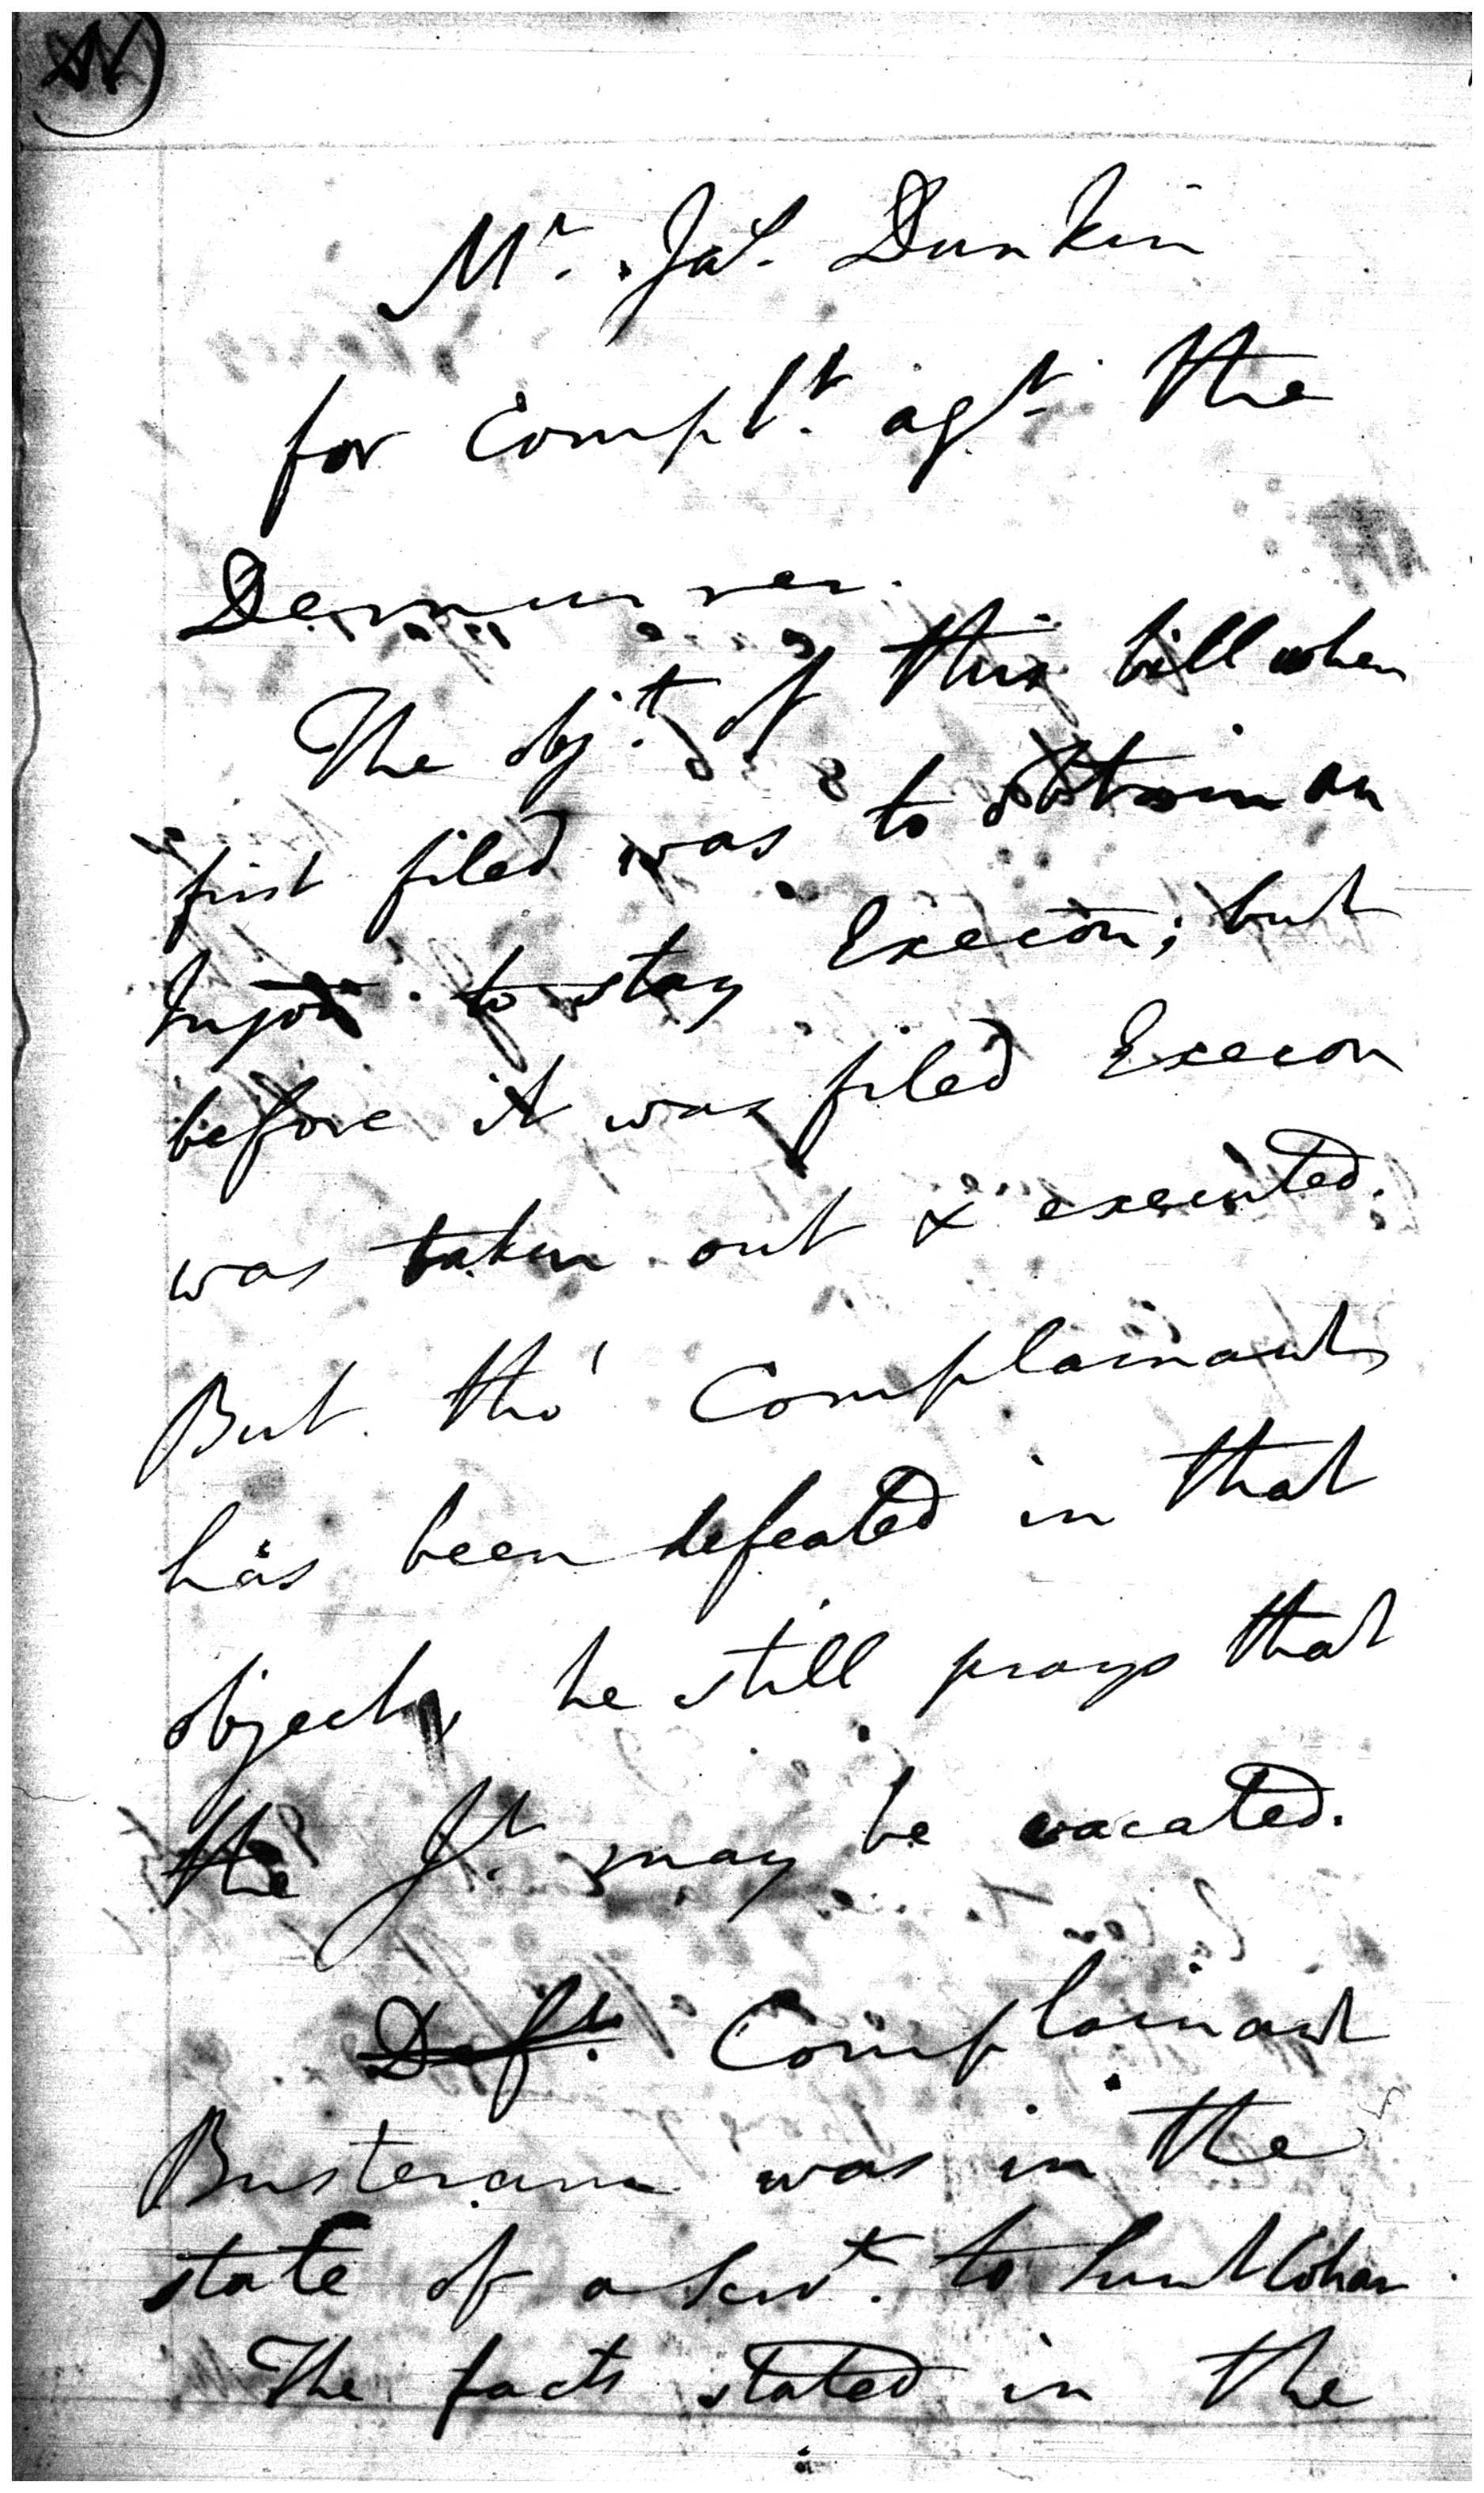 Mr. Jas. Dunkin
for Complt. agt. the
Demurrer.
The objt. of this bill when
first filed was to obtain an
Injon to stay Execon; but
before it was filed Execon
was taken out & executed.
But tho' Complainant
has been defeated in that
object, he still prays that
the Jt. may be vacated.
Deft. Complainant
Busteram was in the
state of a Servt. to
The facts stated in the